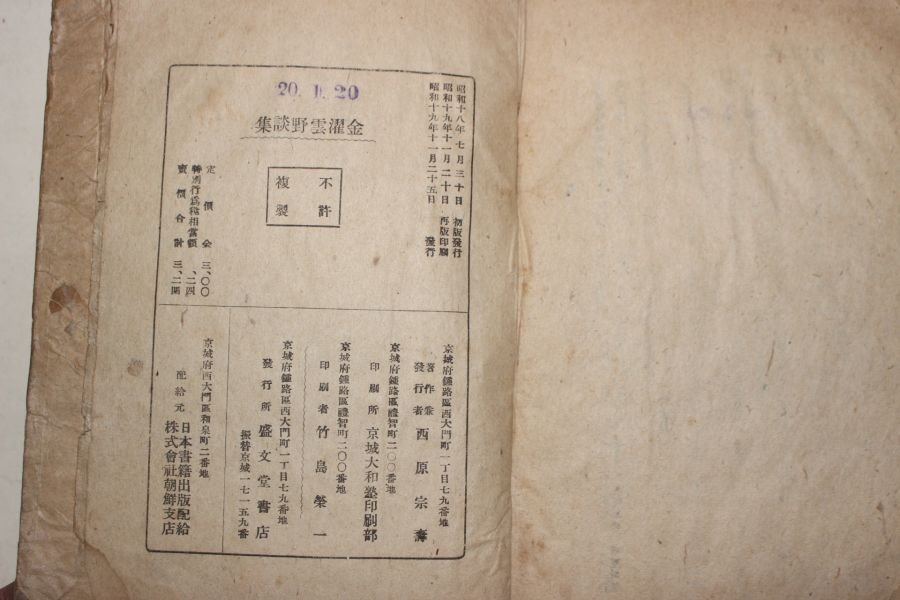 20. 1. 20
昭和十八年七月三十日 初版發行
昭和十九年十一月二十日 再版印刷
昭和十九年十一月二十五日 發行
金濯雲野談集
不許
複製
定價 金 三、〇〇
特別行爲稅相當額 、二四
賣價合計 三、二四
京城府鍾路區西大門町一丁目七九番地
著作兼
發行者 西原宗壽
京城府鍾路區禮智町二〇〇番地
印刷所 京城大和塾印刷部
京城府鍾路區禮智町二〇〇番地
印刷者 竹島榮一
京城府鍾路區西大門町一丁目七九番地
發行所 盛文堂書店
振替京城一七一五九番
京城府西大門區和泉町二番地
配給元 日本書籍出版配給
株式會社朝鮮支店